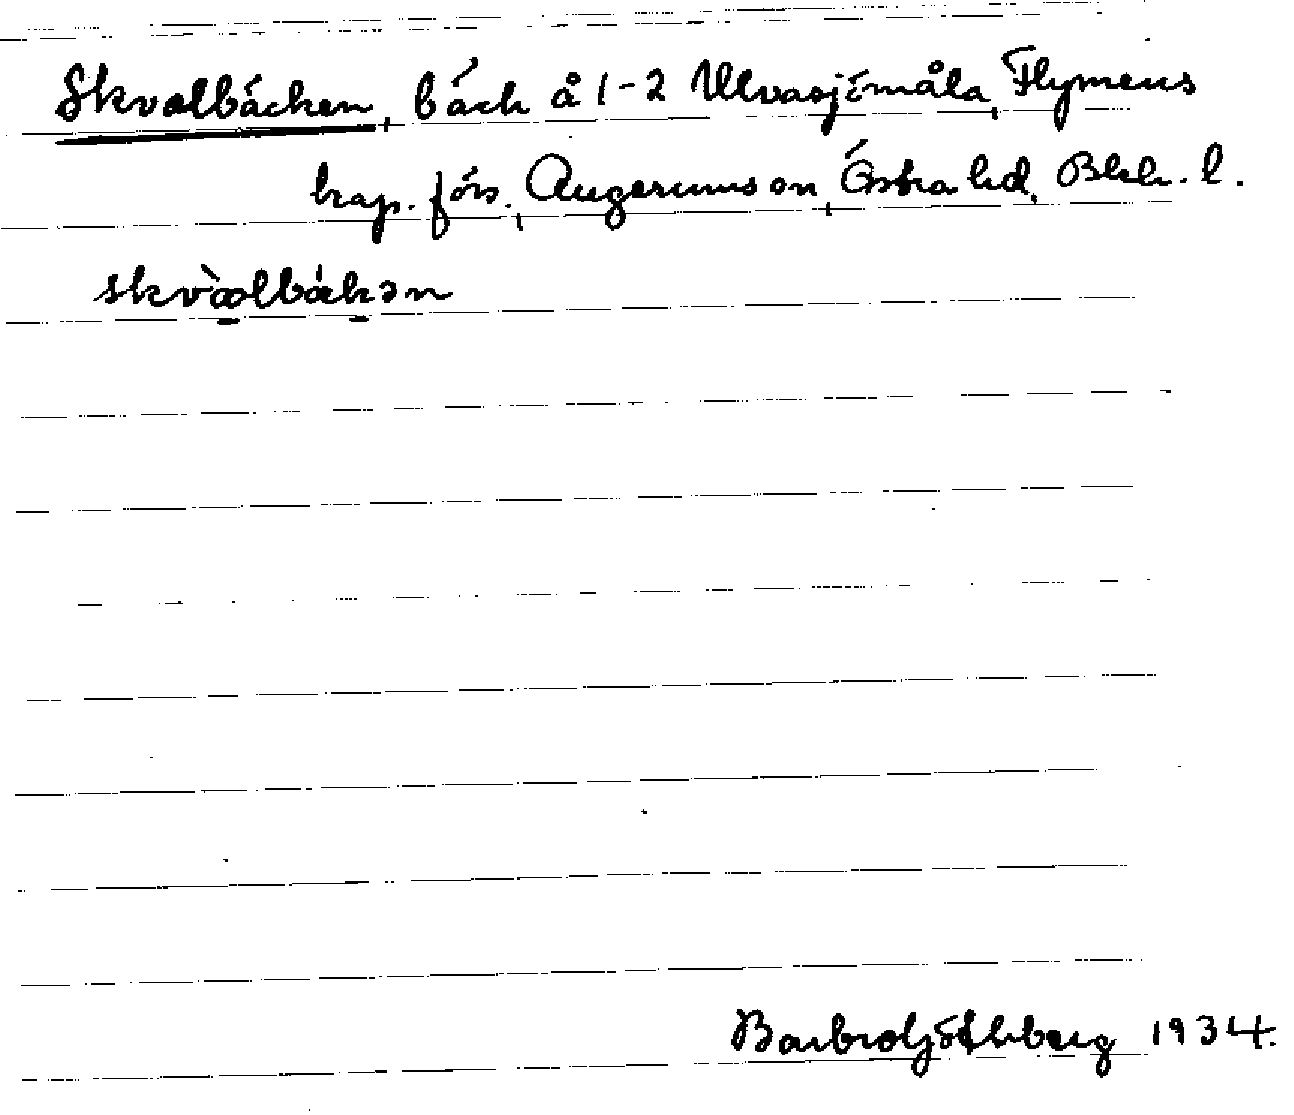 Skvalbäcken, bäck å 1-2 Ulvasjömåla, Flymens
kap. förs., Augerums sn, Östra hd, Blek. l.
skvàlbäkən
Barbro Söthberg 1934.